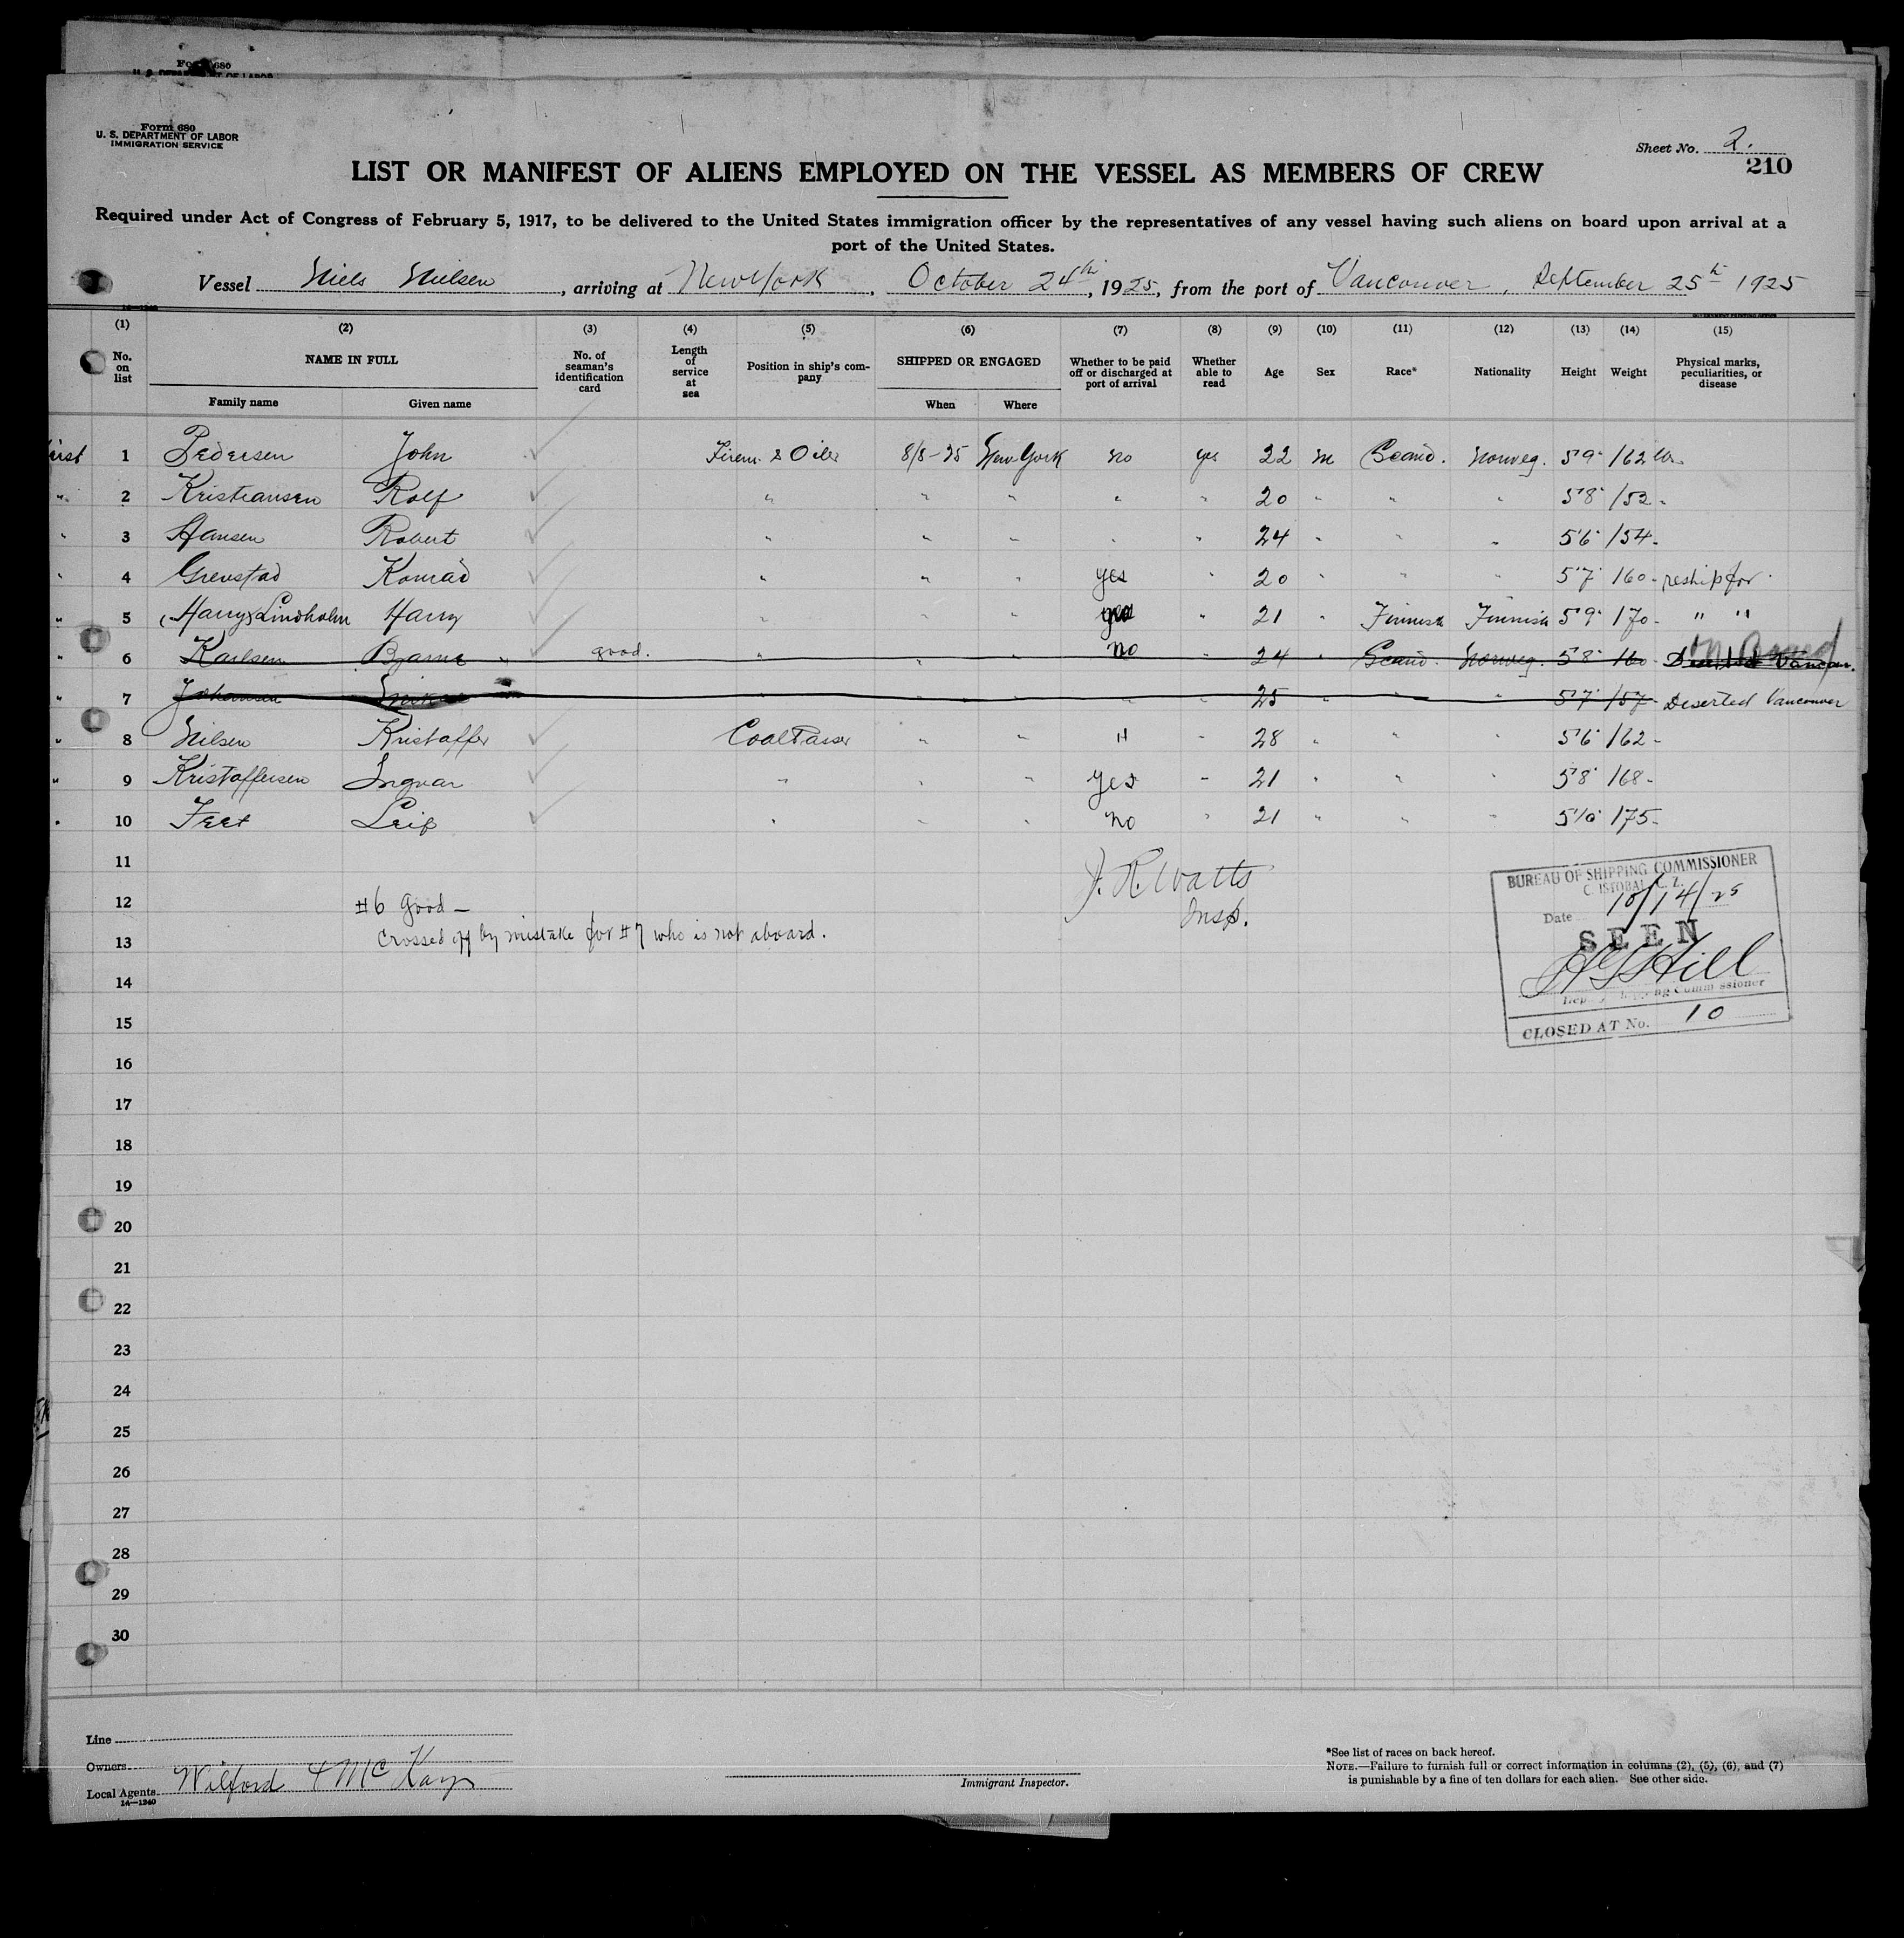 Form 680
U. S. DEPARTMENT OF LABOR
Form 680
U. S. DEPARTMENT OF LABOR
IMMIGRATION SERVICE
Sheet No. 2.
210
LIST OR MANIFEST OF ALIENS EMPLOYED ON THE VESSEL AS MEMBERS OF CREW
Required under Act of Congress of February 5, 1917, to be delivered to the United States immigration officer by the representatives of any vessel having such aliens on board upon arrival at a
port of the United States.
Vessel Niels Nielsen, arriving at New York, October 24th, 1925, from the port of Vancouver, September 25th 1925
(1) (2) (3) (4) (5) (6) (7) (8) (9) (10) (11) (12) (13) (14) (15)
No. on list NAME IN FULL No. of seaman's identification card Length of service at sea Position in ship's company SHIPPED OR ENGAGED Whether to be paid off or discharged at port of arrival Whether able to read Age Sex Race* Nationality Height Weight Physical marks, peculiarities, or disease
Family name Given name When Where
1 Pedersen John Firem. & Oiler 8/8-25 New York no yes 22 m Scand. Norweg. 5'9" 162 lbs
" 2 Kristiansen Rolf " " " " " 20 " " " 5'8" 152 "
" 3 Hansen Robert " " " " " 24 " " " 5'6" 154 "
" 4 Grevstad Konrad " " " yes " 20 " " " 5'7" 160 " reship for.
" 5 (Harry) Lindholm Harry " " " yes " 21 " Finnish Finnish 5'9" 170 " " "
" 6 Karlsen Bjarne " good. " " " no " 24 " Scand. Norweg. 5'8" 160 Deserted Vancouver.
" 7 Johansen " " " " " 25 " " " 5'7" 157 Deserted Vancouver
" 8 Nilsen Kristoffer Coal Passer " " " " 28 " " " 5'6" 162 "
" 9 Kristoffersen Ingvar " " " yes " 21 " " " 5'8" 168 "
" 10 Feet Leif " " " no " 21 " " " 5'10" 175 "
11
12
13
14
15
16
17
18
19
20
21
22
23
24
25
26
27
28
29
30
J. R. Watts
Insp.
#6 Good —
Crossed off by mistake for #7 who is not aboard.
BUREAU OF SHIPPING COMMISSIONER
CRISTOBAL, C. Z.
Date 10/14/25
SEEN
HG Hill
Deputy Shipping Commissioner
CLOSED AT No. 10
Line
Owners
Local Agents Wilford & McKay
14—1240
Immigrant Inspector.
*See list of races on back hereof.
NOTE.—Failure to furnish full or correct information in columns (2), (5), (6), and (7)
is punishable by a fine of ten dollars for each alien. See other side.